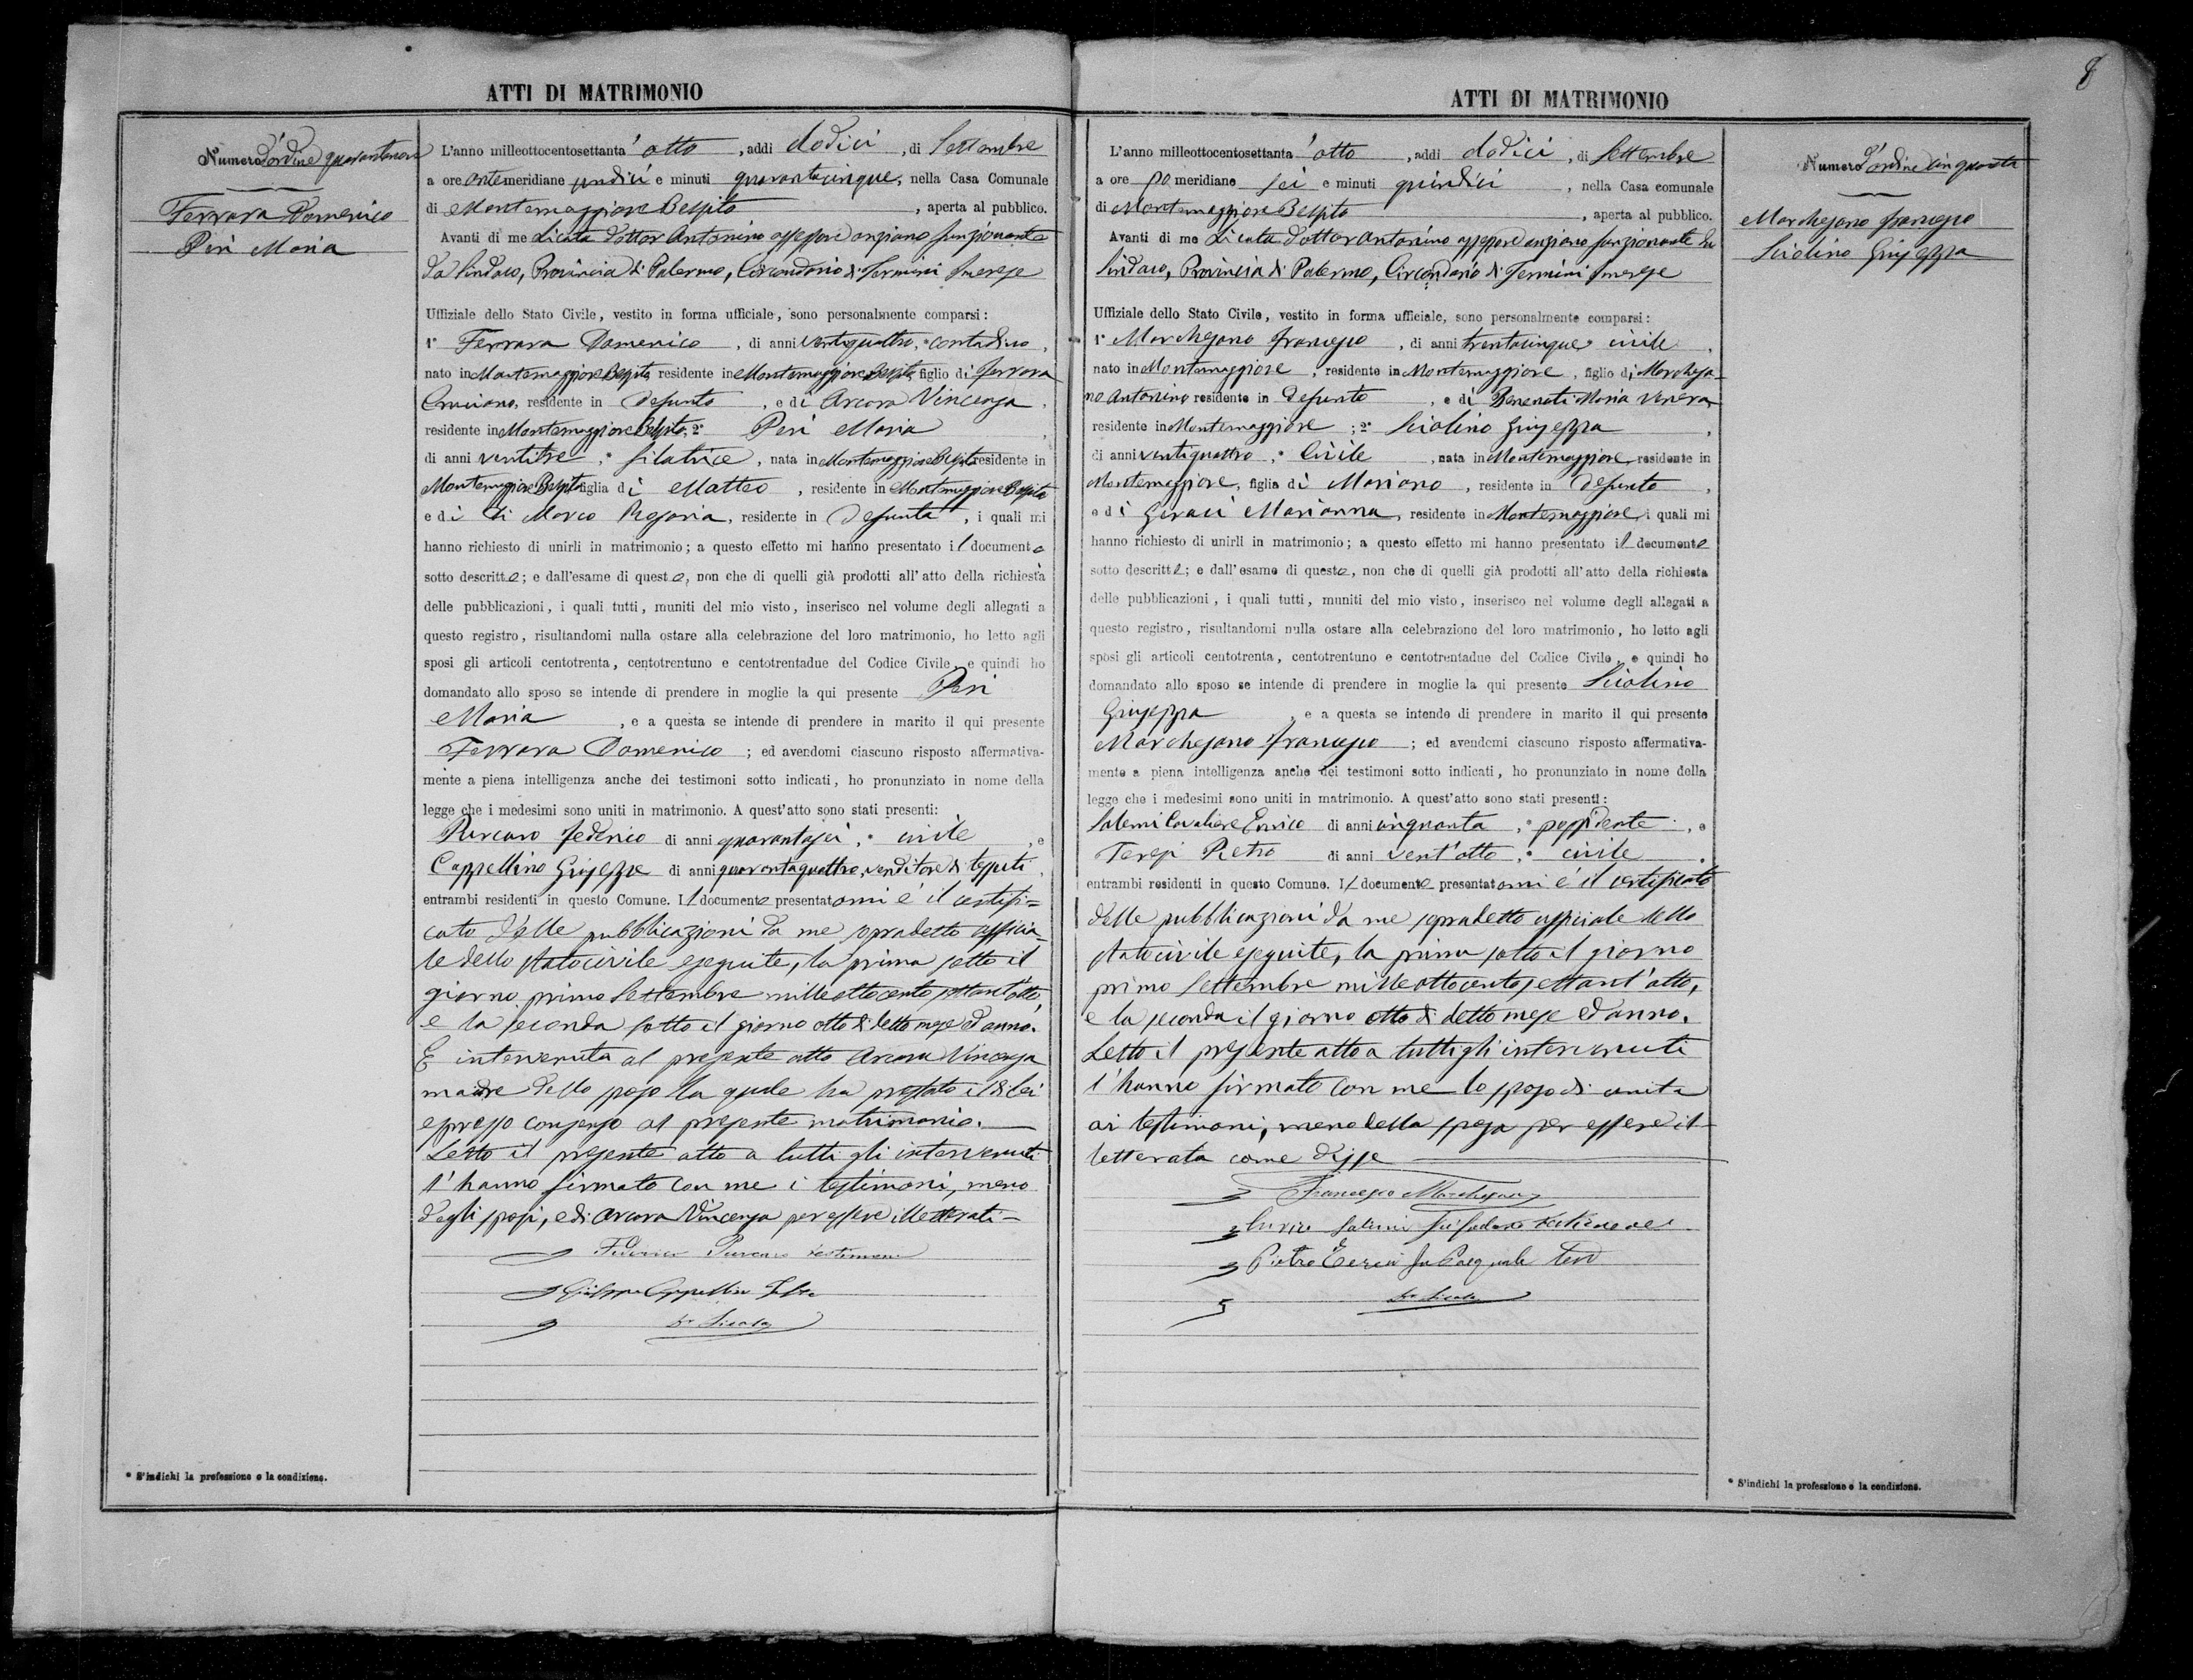 ATTI DI MATRIMONIO
Numero d'ordine quarantanove
Ferrara Domenico
Peri Maria
L'anno milleottocentosettant'otto, addi dodici, di Settembre
a ore antemeridiane undici e minuti quarantacinque, nella Casa Comunale
di Montemaggiore Belsito, aperta al pubblico.
Avanti di me Licata Dottor Antonino assessore anziano funzionante
da Sindaco, Provincia di Palermo, Circondario di Termini Imerese
Uffiziale dello Stato Civile, vestito in forma ufficiale, sono personalmente comparsi:
1° Ferrara Domenico, di anni ventiquattro, * contadino,
nato in Montemaggiore Belsito, residente in Montemaggiore Belsito, figlio di Ferrara
Cruciano, residente in defunto, e di Arcara Vincenza,
residente in Montemaggiore Belsito; 2° Peri Maria,
di anni ventitre, * filatrice, nata in Montemaggiore Belsito residente in
Montemaggiore Belsito figlia di Matteo, residente in Montemaggiore Belsito
e di Di Marco Rosaria, residente in defunta, i quali mi
hanno richiesto di unirli in matrimonio; a questo effetto mi hanno presentato il documento
sotto descritto; e dall'esame di questo, non che di quelli già prodotti all'atto della richiesta
delle pubblicazioni, i quali tutti, muniti del mio visto, inserisco nel volume degli allegati a
questo registro, risultandomi nulla ostare alla celebrazione del loro matrimonio, ho letto agli
sposi gli articoli centotrenta, centotrentuno e centotrentadue del Codice Civile, e quindi ho
domandato allo sposo se intende di prendere in moglie la qui presente Peri
Maria, e a questa se intende di prendere in marito il qui presente
Ferrara Domenico; ed avendomi ciascuno risposto affermativa-
mente a piena intelligenza anche dei testimoni sotto indicati, ho pronunziato in nome della
legge che i medesimi sono uniti in matrimonio. A quest'atto sono stati presenti:
Purcaro Federico di anni quarantasei, * civile, e
Cappellino Giuseppe di anni quarantaquattro, venditore di tessuti,
entrambi residenti in questo Comune. Il documento presentatomi è il certifi=
cato delle pubblicazioni da me sopradetto officia=
le dello stato civile eseguite, la prima sotto il
giorno primo Settembre milleottocento settant'otto,
e la seconda sotto il giorno otto di detto mese ed anno.
È intervenuta al presente atto Arcara Vincenza
madre dello sposo la quale ha prestato il di lei
espresso consenso al presente matrimonio.
Letto il presente atto a tutti gli intervenuti
l'hanno firmato con me i testimoni, meno
degli sposi, e di Arcara Vincenza per essere illetterati=
Federico Purcaro testimone
Giuseppe Cappellino Teste
Dr Licata
* S'indichi la professione o la condizione.
8
ATTI DI MATRIMONIO
Numero d'ordine cinquanta
Marchesano Francesco
Sciolino Giuseppa
L'anno milleottocentosettant'otto, addi dodici, di Settembre
a ore pomeridiane sei e minuti quindici, nella Casa comunale
di Montemaggiore Belsito, aperta al pubblico.
Avanti di me Licata Dottor Antonino assessore anziano funzionante da
Sindaco, Provincia di Palermo, Circondario di Termini Imerese
Uffiziale dello Stato Civile, vestito in forma ufficiale, sono personalmente comparsi:
1° Marchesano Francesco, di anni trentacinque * civile,
nato in Montemaggiore, residente in Montemaggiore, figlio di Marchesa-
no Antonino residente in defunto, e di Benenati Maria Venera,
residente in Montemaggiore; 2° Sciolino Giuseppa,
di anni ventiquattro, * Civile, nata in Montemaggiore, residente in
Montemaggiore, figlia di Mariano, residente in defunto,
e di Geraci Marianna, residente in Montemaggiore, i quali mi
hanno richiesto di unirli in matrimonio; a questo effetto mi hanno presentato il documento
sotto descritto; e dall'esame di questo, non che di quelli già prodotti all'atto della richiesta
delle pubblicazioni, i quali tutti, muniti del mio visto, inserisco nel volume degli allegati a
questo registro, risultandomi nulla ostare alla celebrazione del loro matrimonio, ho letto agli
sposi gli articoli centotrenta, centotrentuno e centotrentadue del Codice Civile, e quindi ho
domandato allo sposo se intende di prendere in moglie la qui presente Sciolino
Giuseppa, e a questa se intende di prendere in marito il qui presente
Marchesano Francesco; ed avendomi ciascuno risposto affermativa-
mente a piena intelligenza anche dei testimoni sotto indicati, ho pronunziato in nome della
legge che i medesimi sono uniti in matrimonio. A quest'atto sono stati presenti:
Salemi Cavaliere Enrico di anni cinquanta, * possidente, e
Teresi Pietro di anni vent'otto, * civile,
entrambi residenti in questo Comune. Il documento presentatomi è il certificato
delle pubblicazioni da me sopradetto officiale dello
stato civile eseguite, la prima sotto il giorno
primo Settembre milleottocento settant'otto,
e la seconda il giorno otto di detto mese ed anno.
Letto il presente atto a tutti gli intervenuti
l'hanno firmato con me lo sposo di unita
ai testimoni, meno della sposa per essere il-
letterata come disse
Francesco Marchesano
Enrico Salemi fu testimone
Pietro Teresi fu Pasquale test
Dr Licata
* S'indichi la professione o la condizione.